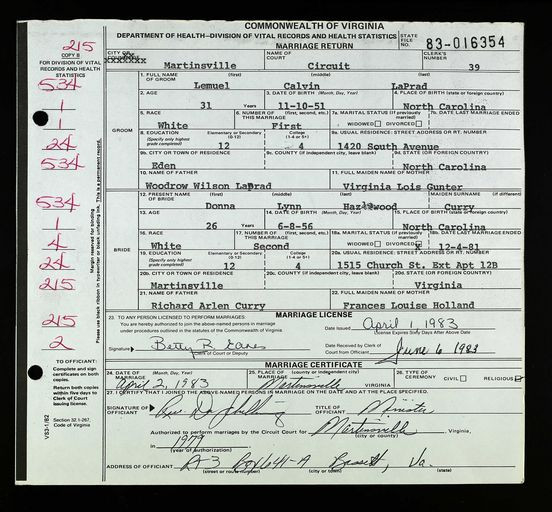 COMMONWEALTH OF VIRGINIA
DEPARTMENT OF HEALTH—DIVISION OF VITAL RECORDS AND HEALTH STATISTICS
STATE FILE NO. 83-016354
MARRIAGE RETURN
215
COPY B
FOR DIVISION OF VITAL RECORDS AND HEALTH STATISTICS
CITY OR XXXXXXX NAME OF COURT CLERK'S NUMBER
Martinsville Circuit 39
534
1
1
24
534
534
1
4
24
215
215
2
Margin reserved for binding.
Please use black ribbon in typewriter or black unfading ink. This is a permanent record.
GROOM
1. FULL NAME OF GROOM (first) (middle) (last)
Lemuel Calvin LaPrad
2. AGE 3. DATE OF BIRTH (Month, Day, Year) 4. PLACE OF BIRTH (state or foreign country)
31 Years 11-10-51 North Carolina
5. RACE 6. NUMBER OF THIS MARRIAGE (first, second, etc.) 7a. MARITAL STATUS (If previously married) 7b. DATE LAST MARRIAGE ENDED
White First WIDOWED DIVORCED
8. EDUCATION (Specify only highest grade completed) Elementary or Secondary (0-12) College (1-4 or 5+) 9a. USUAL RESIDENCE: STREET ADDRESS OR RT. NUMBER
12 4 1420 South Avenue
9b. CITY OR TOWN OF RESIDENCE 9c. COUNTY (if independent city, leave blank) 9d. STATE (OR FOREIGN COUNTRY)
Eden North Carolina
10. NAME OF FATHER 11. FULL MAIDEN NAME OF MOTHER
Woodrow Wilson LaPrad Virginia Lois Gunter
BRIDE
12. PRESENT NAME OF BRIDE (first) (middle) (last) MAIDEN SURNAME (if different)
Donna Lynn Hazelwood Curry
13. AGE 14. DATE OF BIRTH (Month, Day, Year) 15. PLACE OF BIRTH (state or foreign country)
26 Years 6-8-56 North Carolina
16. RACE 17. NUMBER OF THIS MARRIAGE (first, second, etc.) 18a. MARITAL STATUS (if previously married) 18b. DATE LAST MARRIAGE ENDED
White Second WIDOWED DIVORCED X 12-4-81
19. EDUCATION (Specify only highest grade completed) Elementary or Secondary (0-12) College (1-4 or 5+) 20a. USUAL RESIDENCE: STREET ADDRESS OR RT. NUMBER
12 4 1515 Church St. Ext Apt 12B
20b. CITY OR TOWN OF RESIDENCE 20c. COUNTY (if independent city, leave blank) 20d. STATE (OR FOREIGN COUNTRY)
Martinsville Virginia
21. NAME OF FATHER 22. FULL MAIDEN NAME OF MOTHER
Richard Arlen Curry Frances Louise Holland
MARRIAGE LICENSE
23. TO ANY PERSON LICENSED TO PERFORM MARRIAGES:
You are hereby authorized to join the above-named persons in marriage under procedures outlined in the statutes of the Commonwealth of Virginia.
Date Issued April 1, 1983
License Expires Sixty Days After Above Date
Signature Betty R.
Clerk of Court or Deputy
Date Received by Clerk of Court from Officiant June 6 1983
TO OFFICIANT:
Complete and sign certificates on both copies.
Return both copies within five days to Clerk of Court issuing license.
Section 32.1-267, Code of Virginia
VS3-1/82
MARRIAGE CERTIFICATE
24. DATE OF MARRIAGE (Month, Day, Year) 25. PLACE OF MARRIAGE (county or independent city) 26. TYPE OF CEREMONY
April 2, 1983 Martinsville VIRGINIA CIVIL RELIGIOUS
27. I CERTIFY THAT I JOINED THE ABOVE-NAMED PERSONS IN MARRIAGE ON THE DATE AND AT THE PLACE SPECIFIED.
SIGNATURE OF OFFICIANT Rev. TITLE OF OFFICIANT Minister
Authorized to perform marriages by the Circuit Court for Martinsville, Virginia,
(city or county)
in 1979
(year of authorization)
ADDRESS OF OFFICIANT Rt 3 Box 641-A Bassett, Va.
(street or route number) (city or town) (state)